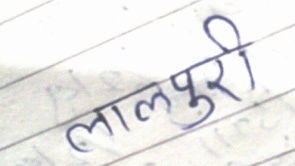 लालपुरी